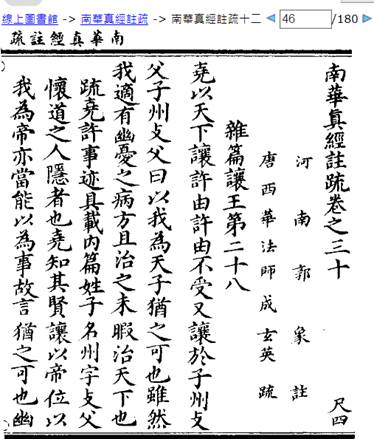 線上圖書館 -> 南華真經註疏 -> 南華真經註疏十二 46 /180
南華真經註疏
南華真經註疏卷之三十 尺四
河南郭象註
唐西華法師成玄英疏
雜篇讓王第二十八
堯以天下讓許由許由不受又讓於子州支
父子州支父曰以我為天子猶之可也雖然
我適有幽憂之病方且治之未暇治天下也
疏堯許事迹具載内篇姓子名州字支父
懷道之人隱者也堯知其賢讓以帝位以
我為帝亦當能以為事故言猶之可也幽